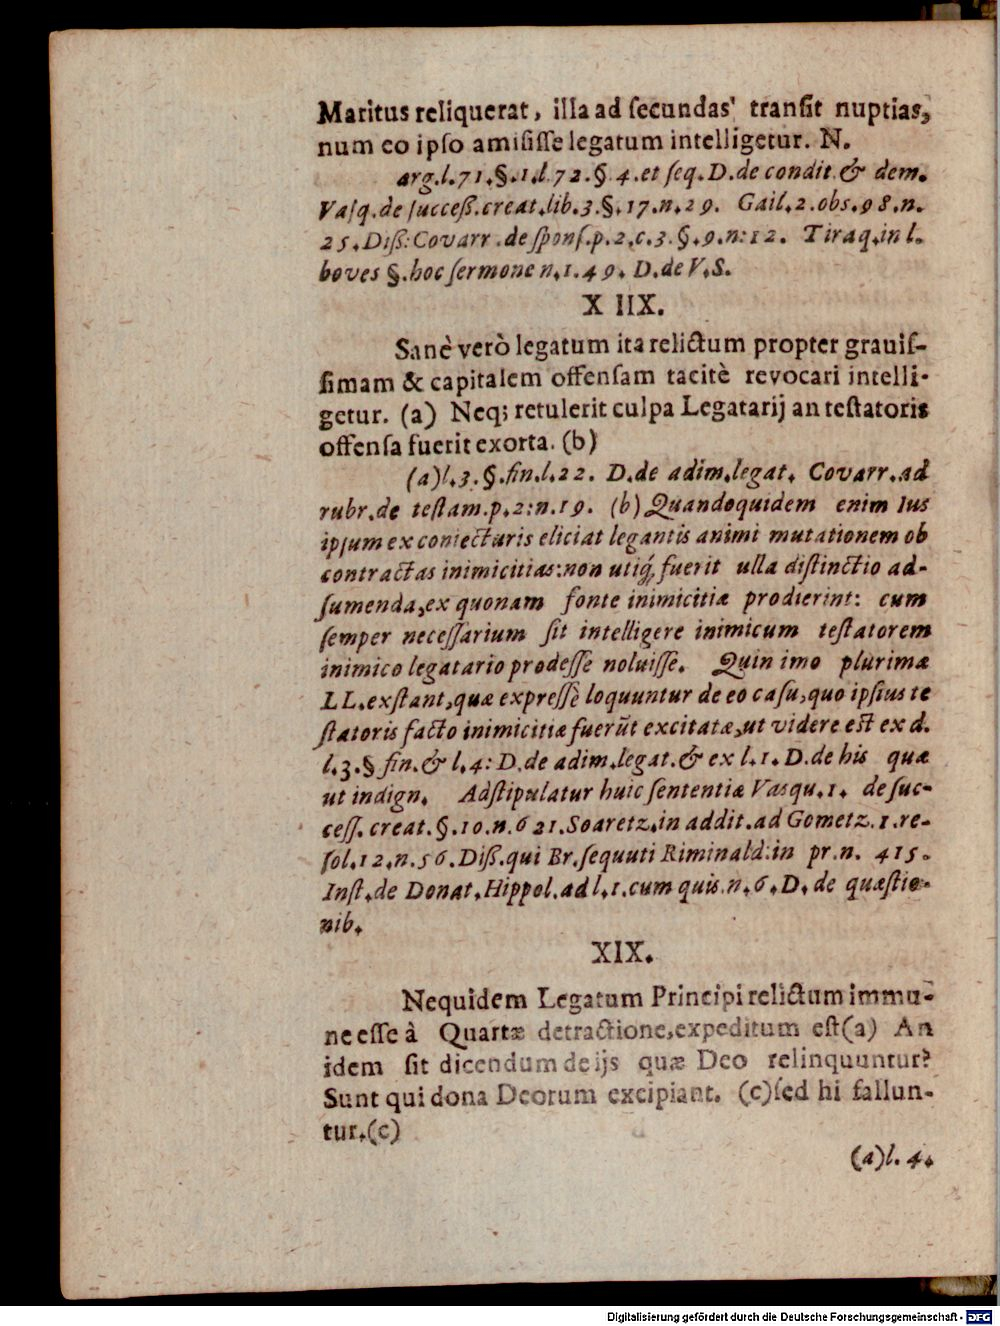 Maritus reliquerat, illa ad ſecundas' tranſit nuptias,
num eo ipſo amiſiſſe legatum intelligetur. N.
arg.l.71.§.1.l.72.§.4.et ſeq.D.de condit.& dem.
Vaſq.de ſucceß.creat.lib.3.§.17.n.29. Gail.2.obs.98.n.
25.Diß:Covarr.de ſponſ.p.2.c.3.§.9.n:12. Tiraq.in l.
boves §.hoc ſermone n.1.49.D.de V.S.
X IIX.
Sanè verò legatum ita relictum propter grauiſ-
ſimam & capitalem offenſam tacitè revocari intelli-
getur. (a) Neq; retulerit culpa Legatarij an teſtatoris
offenſa fuerit exorta. (b)
(a)l.3.§.fin.l.22. D.de adim.legat. Covarr.ad
rubr.de teſtam.p.2:n.19. (b) Quandoquidem enim Ius
ipſum ex coniecturis eliciat legantis animi mutationem ob
contractas inimicitias:non utiq́; fuerit ulla diſtinctio ad-
ſumenda,ex quonam fonte inimicitiæ prodierint: cum
ſemper neceſſarium ſit intelligere inimicum teſtatorem
inimico legatario prodeſſe noluiſſe. Quin imo plurimæ
LL.exſtant,quæ expreſſè loquuntur de eo caſu,quo ipſius te
ſtatoris facto inimicitiæ fuerūt excitatæ,ut videre eſt ex d.
l.3.§ fin.& l.4: D.de adim.legat.& ex l.1.D.de his quæ
ut indign. Adſtipulatur huic ſententiæ Vasqu.1. de ſuc-
ceſſ. creat.§.10.n.621.Soaretz.in addit.ad Gometz.1.re-
ſol.12.n.56.Diß.qui Br.ſequuti Riminald:in pr.n. 415.
Inſt.de Donat.Hippol.ad l.1.cum quis.n.6.D.de quæſtio-
nib.
XIX.
Nequidem Legatum Principi relictum immu-
ne eſſe à Quartæ detractione,expeditum eſt(a) An
idem ſit dicendum de ijs quæ Deo relinquuntur?
Sunt qui dona Deorum excipiant. (c)ſed hi fallun-
tur.(c)
(a)l. 4.
Digitalisierung gefördert durch die Deutsche Forschungsgemeinschaft - DFG